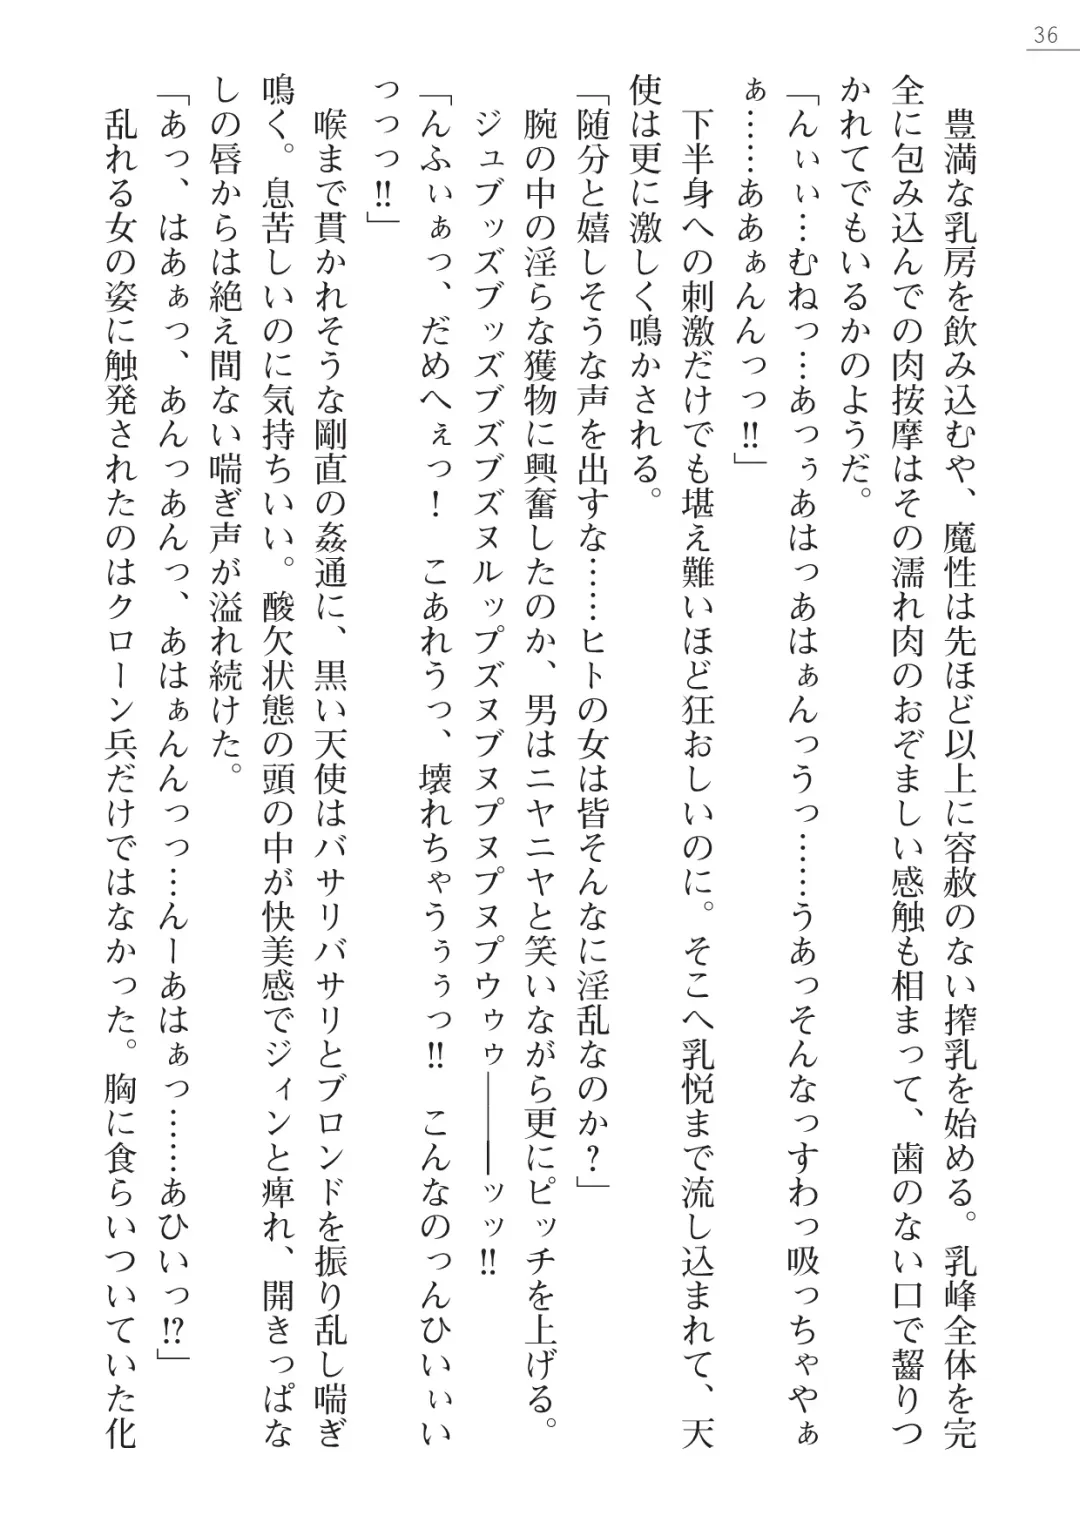 36
　豊満な乳房を飲み込むや、魔性は先ほど以上に容赦のない搾乳を始める。乳峰全体を完
全に包み込んでの肉按摩はその濡れ肉のおぞましい感触も相まって、歯のない口で齧りつ
かれてでもいるかのようだ。
「んぃぃ…むねっ…あっぅあはっあはぁんっうっ……うあっそんなっすわっ吸っちゃやぁ
ぁ……ああぁんんっっ!!」
　下半身への刺激だけでも堪え難いほど狂おしいのに。そこへ乳悦まで流し込まれて、天
使は更に激しく鳴かされる。
「随分と嬉しそうな声を出すな……ヒトの女は皆そんなに淫乱なのか？」
　腕の中の淫らな獲物に興奮したのか、男はニヤニヤと笑いながら更にピッチを上げる。
　ジュブッズブッズブズブズヌルップズヌブヌプヌプヌプウゥゥ――ッッ!!
「んふぃぁっ、だめへぇっ！　こあれうっ、壊れちゃうぅぅっ!!　こんなのっんひいぃい
っっっ!!」
　喉まで貫かれそうな剛直の姦通に、黒い天使はバサリバサリとブロンドを振り乱し喘ぎ
鳴く。息苦しいのに気持ちいい。酸欠状態の頭の中が快美感でジィンと痺れ、開きっぱな
しの唇からは絶え間ない喘ぎ声が溢れ続けた。
「あっ、はあぁっ、あんっあんっ、あはぁんんっっ…んーあはぁっ……あひいっ!?」
　乱れる女の姿に触発されたのはクローン兵だけではなかった。胸に食らいついていた化